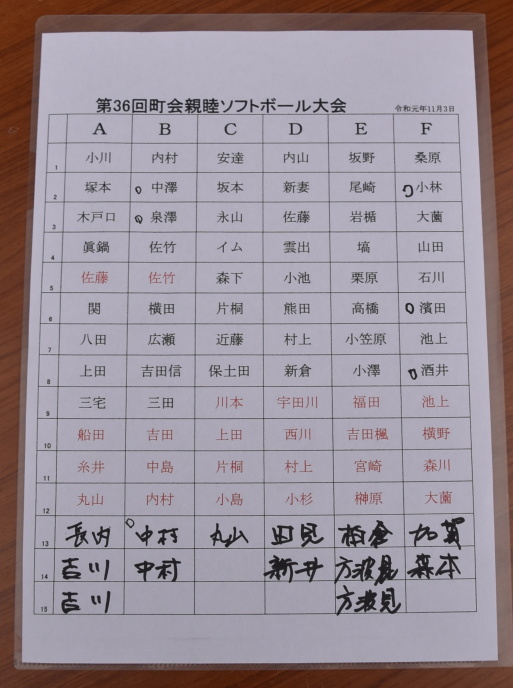 第36回町会親睦ソフトボール大会 令和元年11月3日
A B C D E F
1 小川 内村 安達 内山 坂野 桑原
2 塚本 中澤 坂本 新妻 尾崎 小林
3 木戸口 泉澤 永山 佐藤 岩楯 大薗
4 眞鍋 佐竹 イム 雲出 塙 山田
5 佐藤 佐竹 森下 小池 栗原 石川
6 関 横田 片桐 熊田 高橋 濱田
7 八田 広瀬 近藤 村上 小笠原 池上
8 上田 吉田信 保土田 新倉 小澤 酒井
9 三宅 三田 川本 宇田川 福田 池上
10 船田 吉田 上田 西川 吉田楓 横野
11 糸井 中島 片桐 村上 宮崎 森川
12 丸山 内村 小島 小杉 榊原 大薗
13 長内 中村 丸山 田見 柏倉 加賀
14 吉川 中村 新井 方波見 森本
15 吉川 方波見